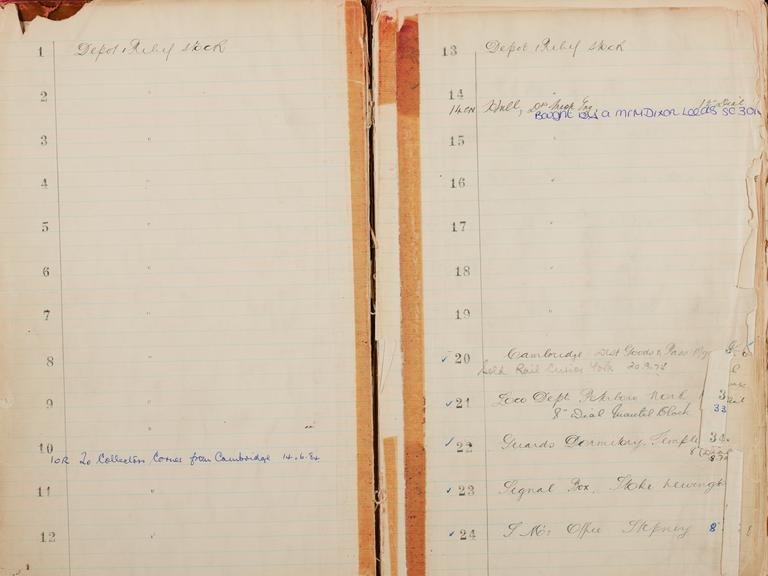 1 Depot Relief Stock
2
3 "
4 "
5 "
6 "
7 "
8 "
9 "
10
10R To Collectors Corner from Cambridge 14.6.84
11 "
12 "
13 Depot Relief Stock
14
14 CN Hull, 12" Dial
Bought by a Mr M Dixon Leeds SE 301
15 "
16 "
17 "
18 "
19 "
✓ 20 Cambridge Dist Goods & Pass Mgr
Sold Rail Curios York 20.3.78
✓ 21 Loco Dept Peterboro North 3
8" Dial Mantel Clock 33
✓ 22 Guards Dormitory, Temple 34
✓ 23 Signal Box, Stoke Newingt
✓ 24 S.M's Office Stepney 8"